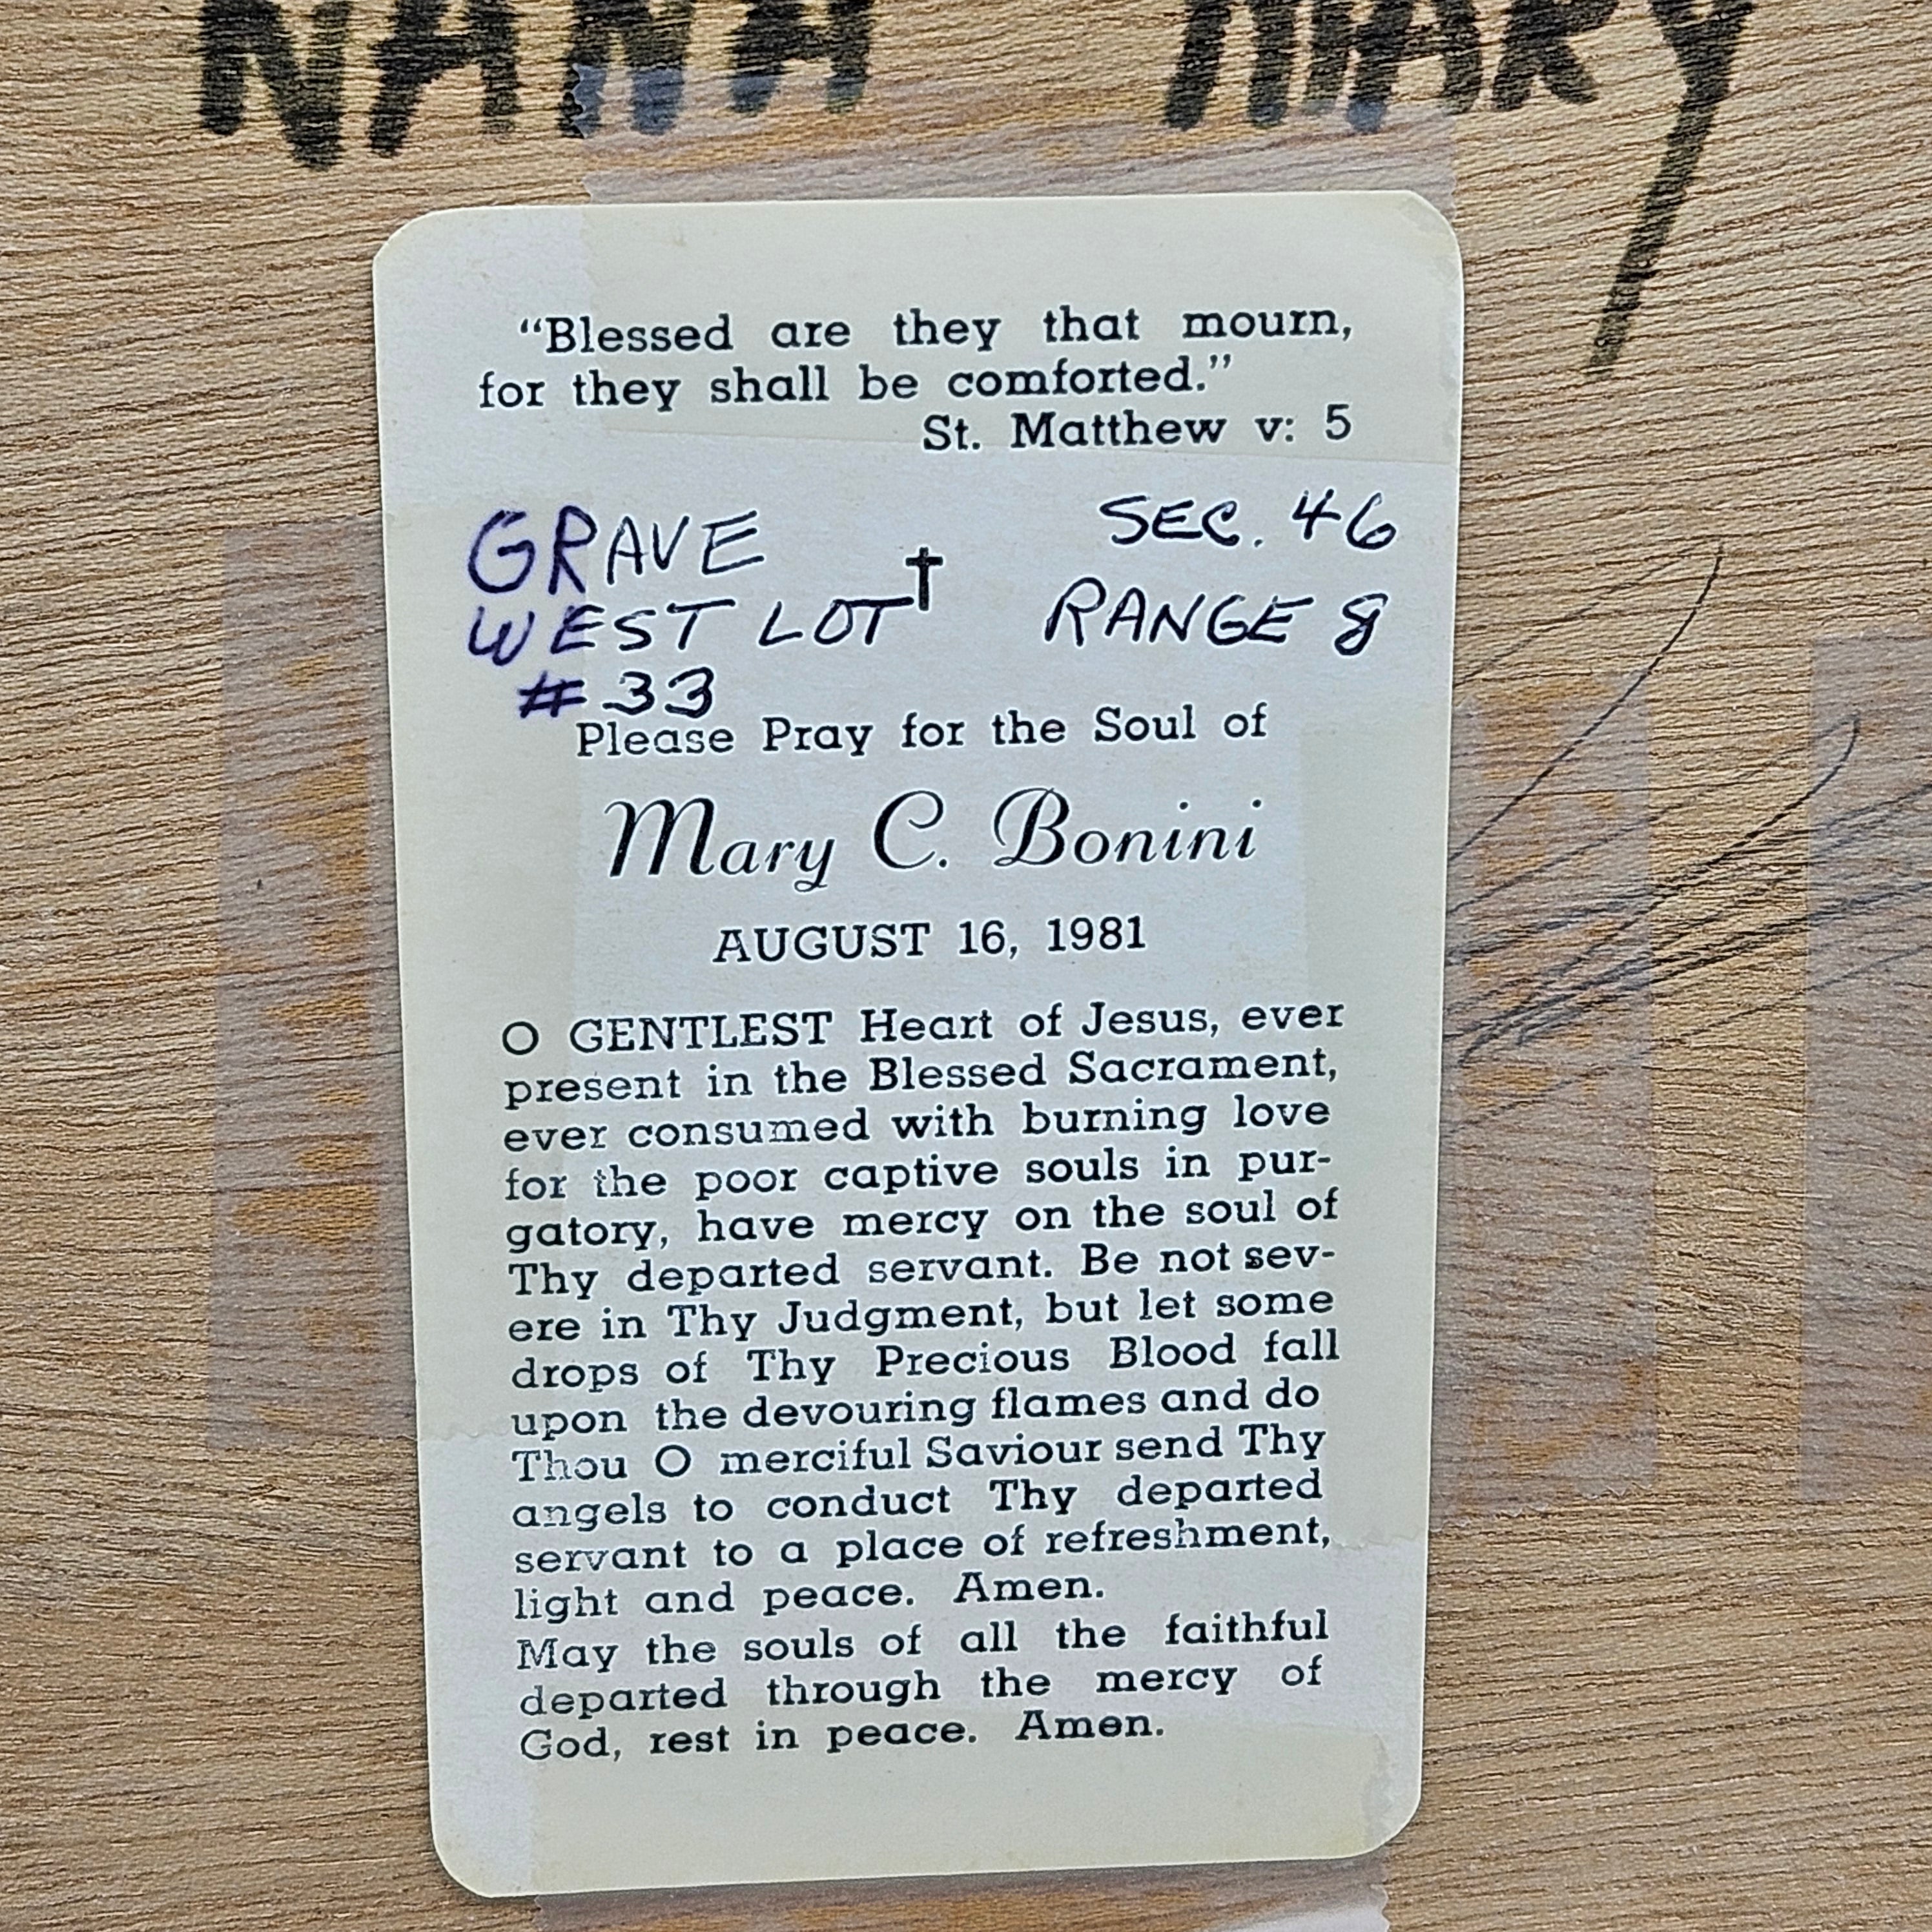 NANA MARY
"Blessed are they that mourn,
for they shall be comforted."
St. Matthew v: 5
GRAVE SEC. 46
WEST LOT RANGE 8
#33
Please Pray for the Soul of
Mary C. Bonini
AUGUST 16, 1981
O GENTLEST Heart of Jesus, ever
present in the Blessed Sacrament,
ever consumed with burning love
for the poor captive souls in pur-
gatory, have mercy on the soul of
Thy departed servant. Be not sev-
ere in Thy Judgment, but let some
drops of Thy Precious Blood fall
upon the devouring flames and do
Thou O merciful Saviour send Thy
angels to conduct Thy departed
servant to a place of refreshment,
light and peace. Amen.
May the souls of all the faithful
departed through the mercy of
God, rest in peace. Amen.